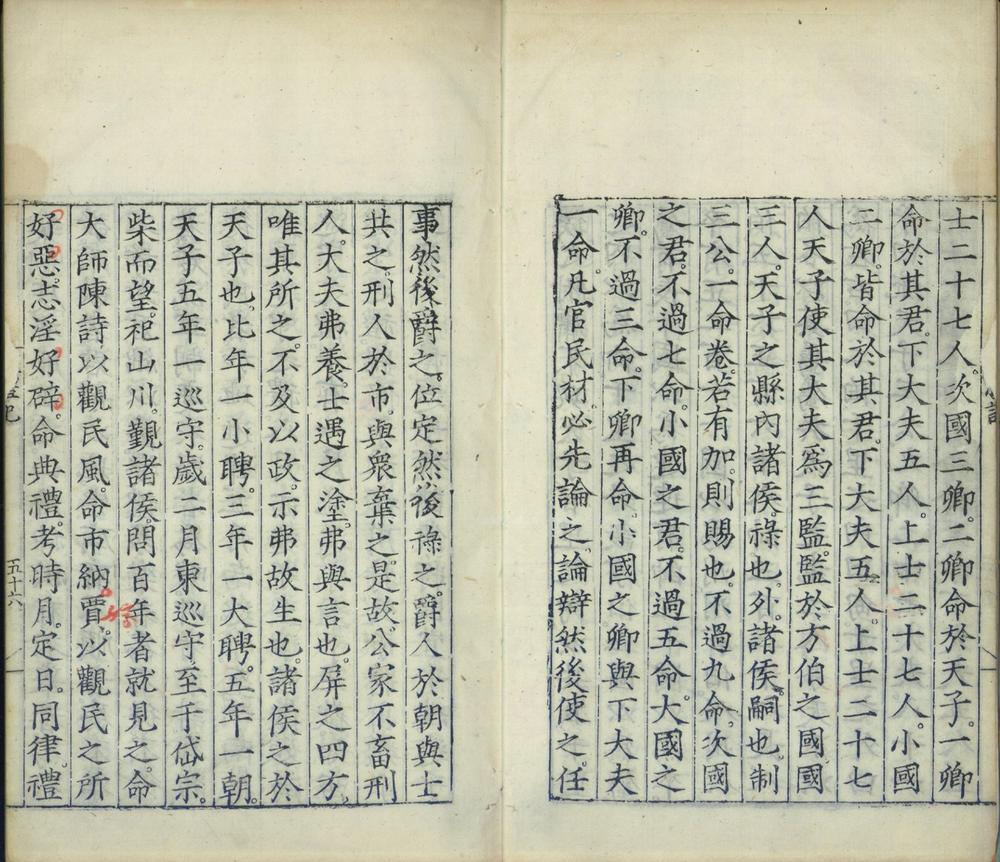 士二十七人。次國三卿。二卿命於天子。一卿
命於其君。下大夫五人。上士二十七人。小國
二卿。皆命於其君。下大夫五人。上士二十七
人天子使其大夫爲三監。監於方伯之國國
三人。天子之縣內諸侯。祿也。外諸侯。嗣也。制
三公。一命卷。若有加。則賜也。不過九命。次國
之君。不過七命。小國之君。不過五命。大國之
卿。不過三命。下卿再命。小國之卿與下大夫
一命。凡官民材。必先論之。論辯然後使之。任
事然後爵之。位定然後祿之。爵人於朝與士
共之。刑人於市。與眾棄之。是故公家不畜刑
人。大夫弗養。士遇之塗。弗與言也。屏之四方。
唯其所之。不及以政。示弗故生也。諸侯之於
天子也。比年一小聘。三年一大聘。五年一朝。
天子五年一巡守。歲二月東巡守。至于岱宗。
柴而望。祀山川。覲諸侯。問百年者就見之。命
大師陳詩以觀民風。命市納賈。以觀民之所
好惡。志淫好辟。命典禮。考時月。定日。同律。禮
五十六